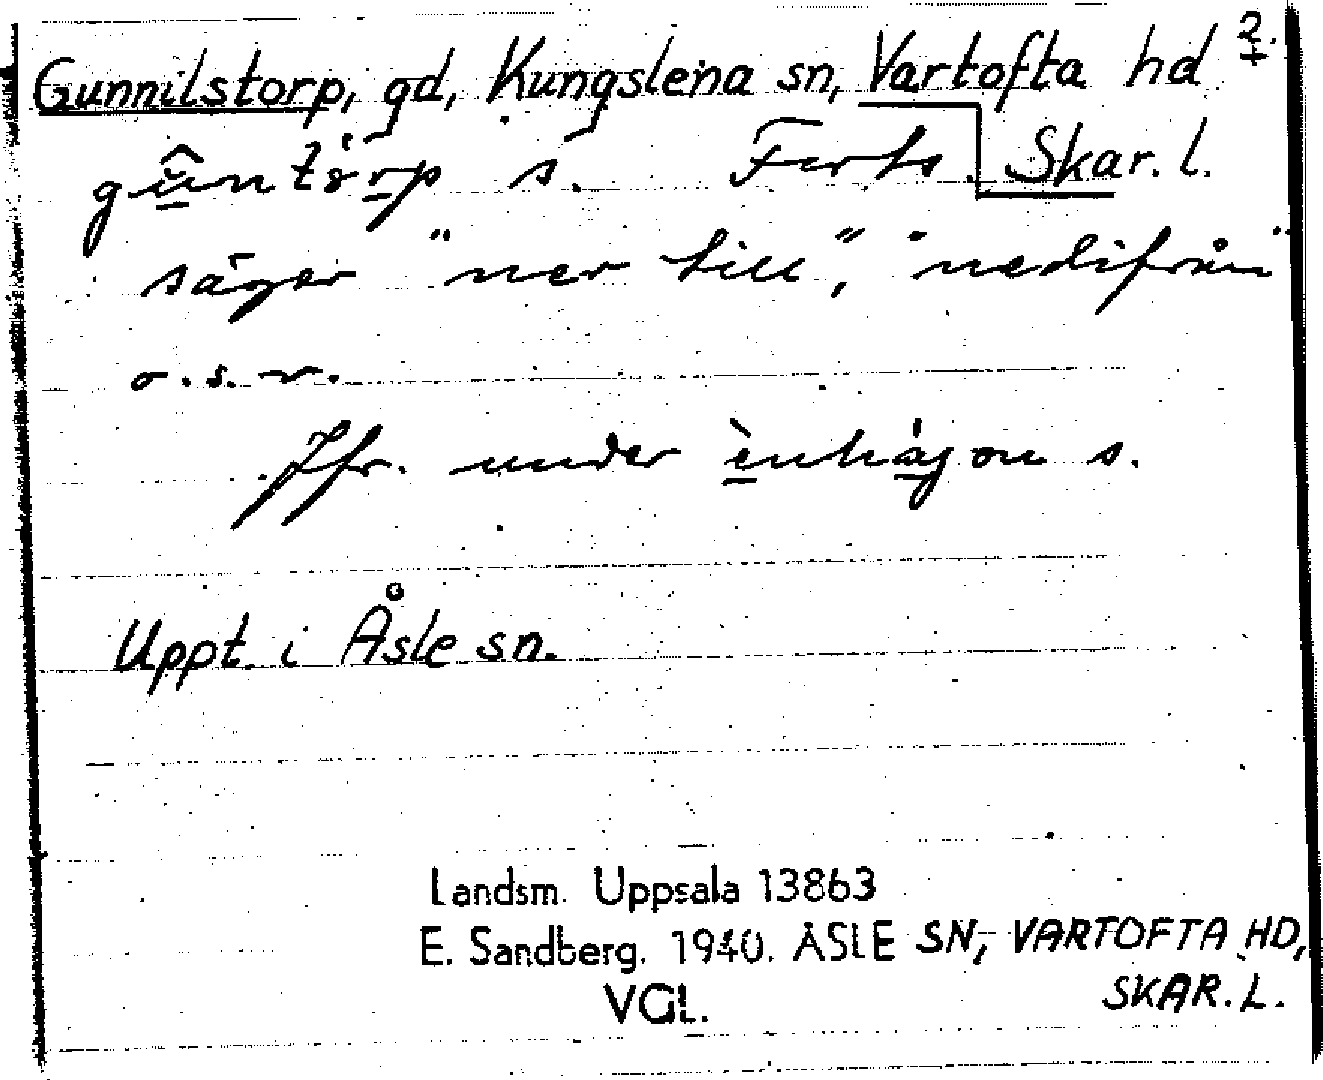 Gunnilstorp, gd, Kungslena sn, Vartofta hd 2.
s. Forts. Skar. l.
säger "ner till", "nedifrån"
o.s.v.
Jfr. under ènhágon s.
Uppt. i Åsle sn.
Landsm. Uppsala 13863
E. Sandberg. 1940. ÅSLE SN, VARTOFTA HD,
VGL. SKAR. L.